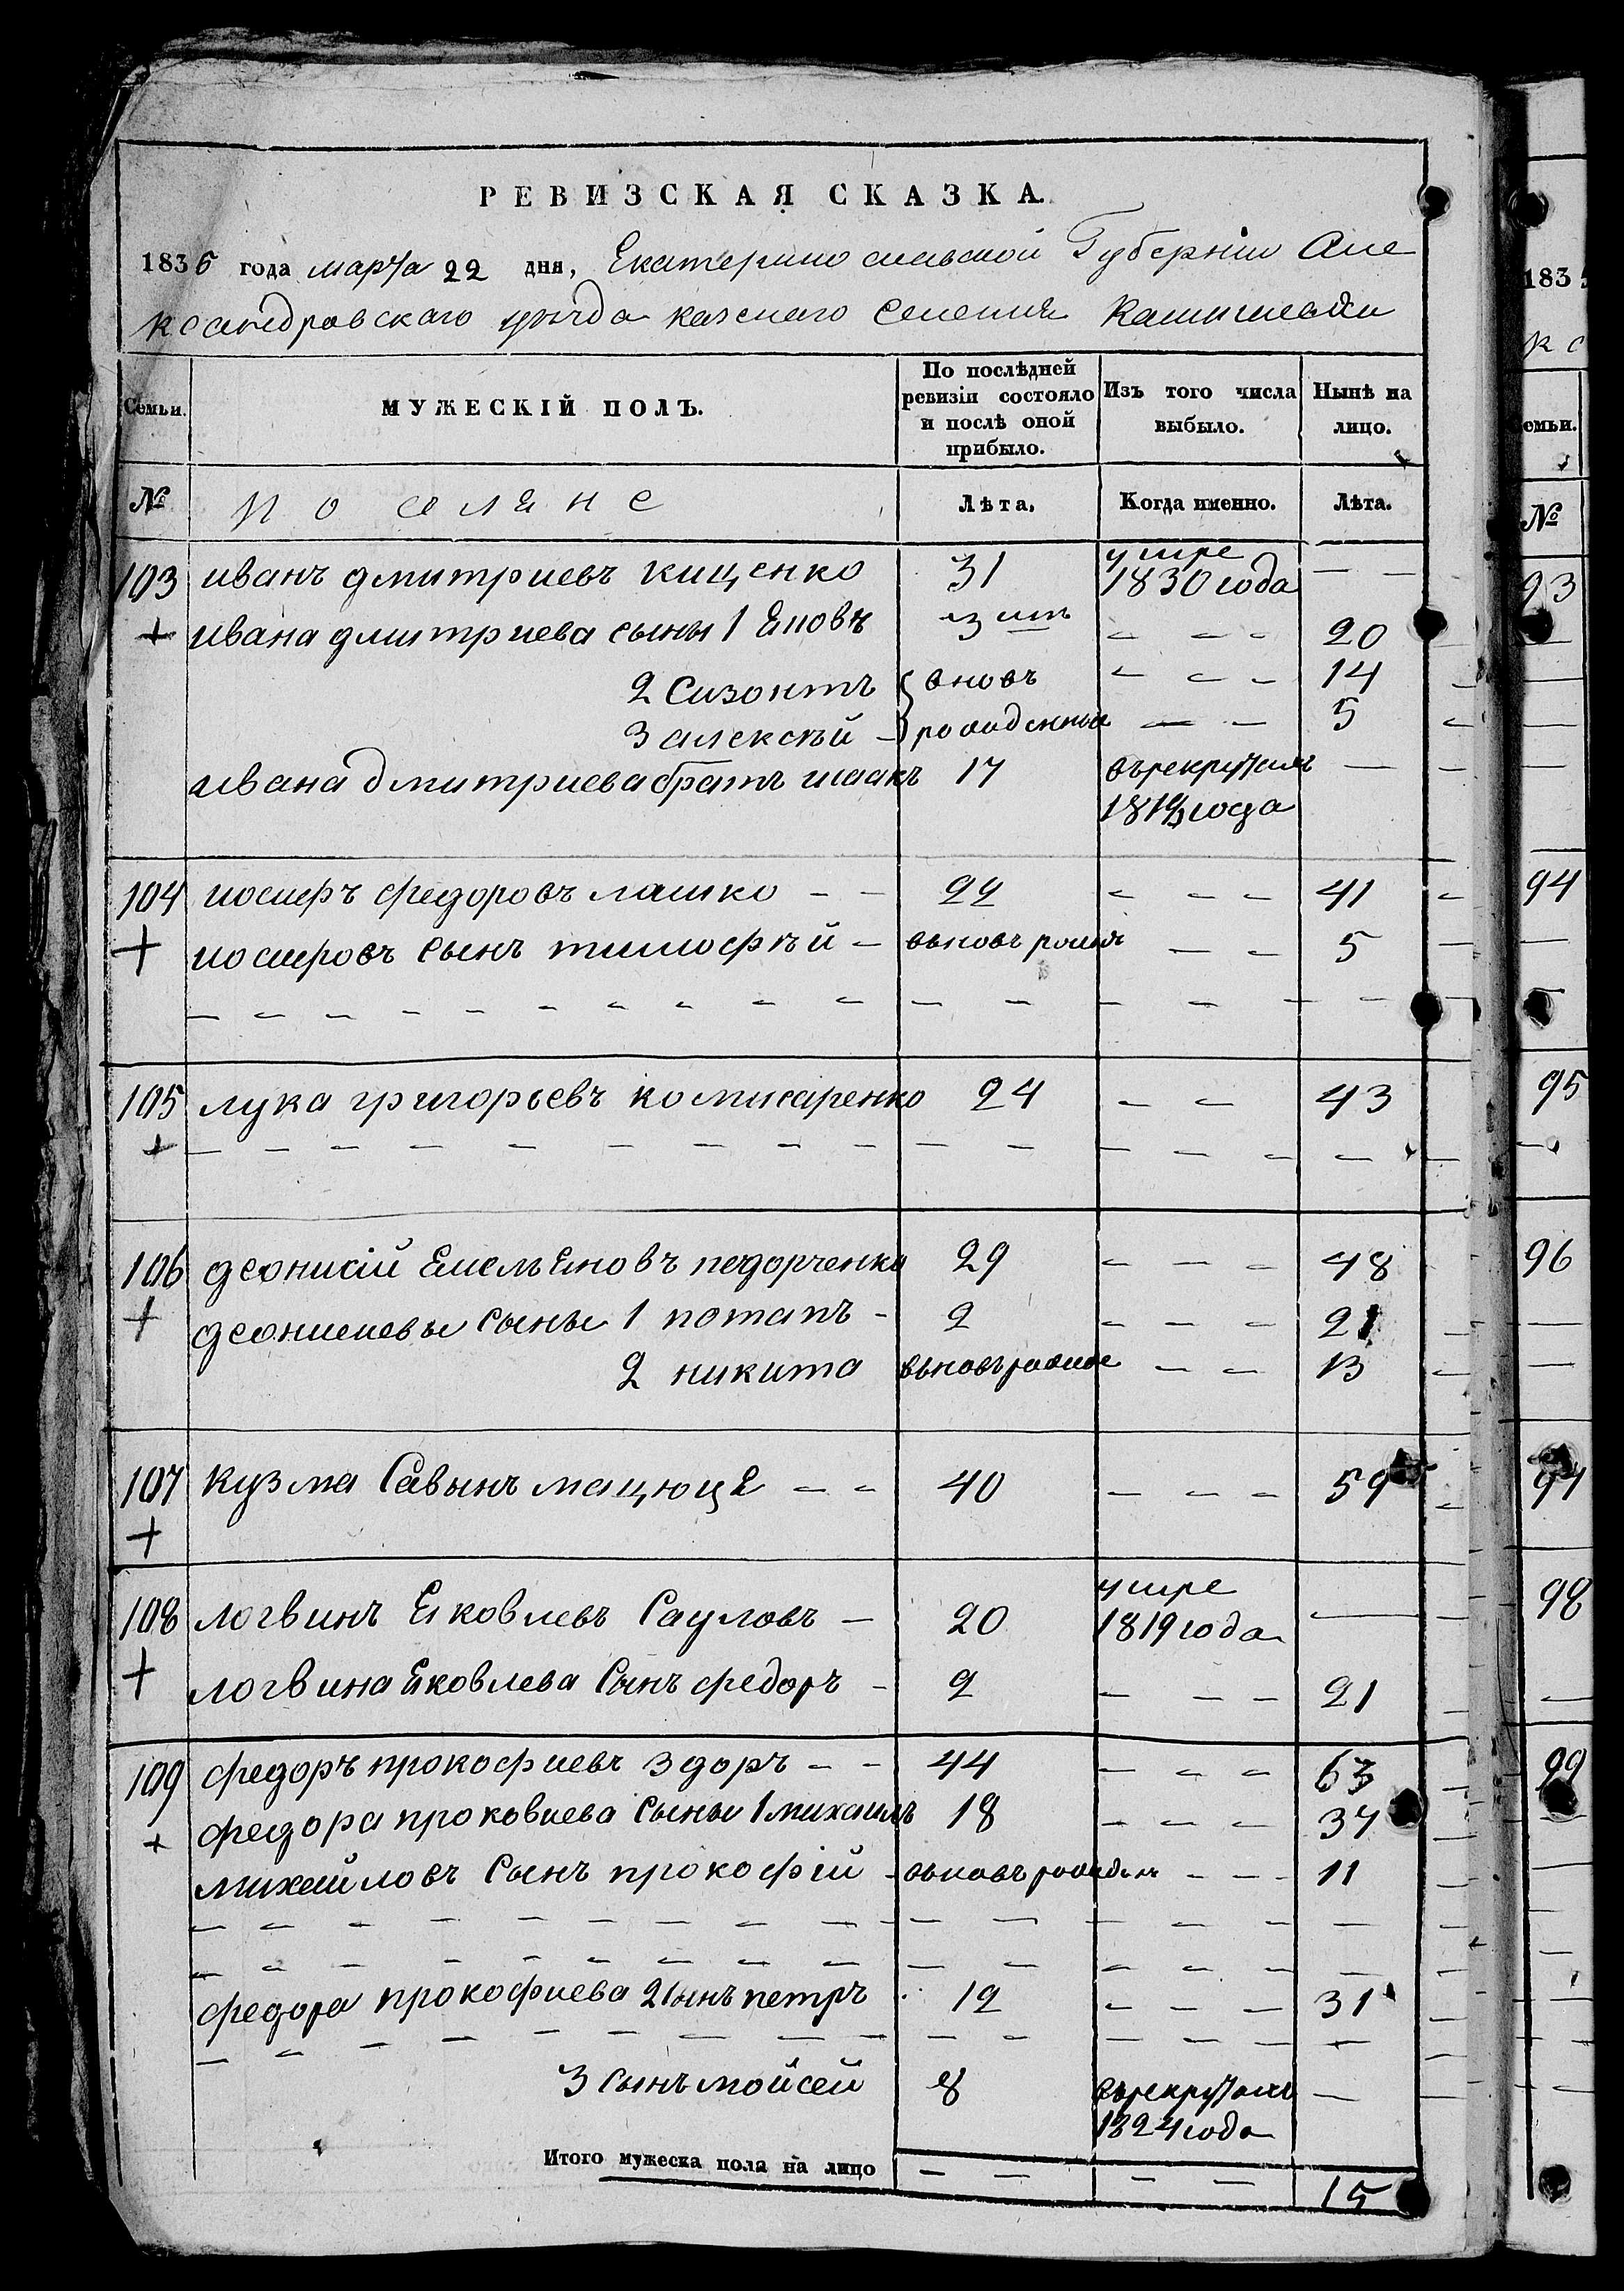 РЕВИЗСКАЯ СКАЗКА.
1835 года марта 22 дня, Екатеринославской Губерніи Але
ксандровскаго уѣзда казенаго Селенія
Семьи. МУЖЕСКІЙ ПОЛЪ. По послѣдней ревизіи состояло и послѣ оной прибыло. Изъ того числа выбыло. Нынѣ на лицо.
№ поселяне Лѣта. Когда именно. Лѣта.
103 иванъ дмитриевъ кищенко 31 умре 1830 года — —
+ ивана дмитриева сыны 1 - - - 20
2 Сизонтъ вновь - - - 14
3 алексѣй - рожденные — — - 5
ивана дмитриева братъ исаакъ 17 въ рекрутахъ 1819 года —
104 иосифъ федоровъ лашко - - 22 - - - 41
+ иосифовъ сынъ тимофѣй - вьновь - - 5
- - - - - - - - - - - - - - - -
105 лука григорьевъ комисаренко 24 - - 43
+ - - - - - - - - - - - - - - -
106 деонисій Емельяновъ педорченко 29 - - - 48
+ деонисиевы сыны 1 потапъ - 2 - - - 21
2 никита вьновь - - 13
107 кузма Савынъ мацюця - - 40 - - - 59
+
108 логвинъ Яковлевъ Сауловъ - 20 умре 1819 года —
+ логвина Яковлева Сынъ федоръ - 2 - - - 21
109 федоръ прокофиевъ здоръ - - 44 - - - 63
+ федора проковиева сыны 1 михаилъ 18 - - - 37
михайловъ Сынъ прокофій - вьновь - - - 11
- - - - - - - - - - - - - - - -
- - - - - - - - - - - - - - - -
федора прокофиева 2 сынъ петръ 12 - - - 31
- - - - - - - - - - - - - - -
3 сынъ мойсей 8 въ рекрутахъ 1824 года —
Итого мужеска пола на лицо - - - - 15
183
кс
Семьи.
№
93
94
95
96
97
98
99